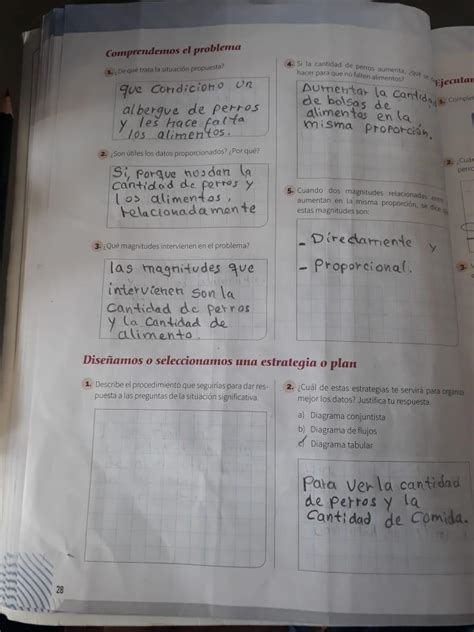 Comprendemos el problema
1. ¿De qué trata la situación propuesta?
que condiciono un
albergue de perros
y les hace falta
los alimentos.
2. ¿Son útiles los datos proporcionados? ¿Por qué?
Si, porque nos dan la
cantidad de perros y
los alimentos,
relacionadamente
3. ¿Qué magnitudes intervienen en el problema?
las magnitudes que
intervienen son la
cantidad de perros
y la cantidad de
alimento.
4. Si la cantidad de perros aumenta, ¿qué se
hacer para que no falten alimentos?
Aumentar la cantidad
de bolsas de
alimentos en la
misma proporción.
5. Cuando dos magnitudes relacionadas entre
aumentan en la misma proporción, se dice
estas magnitudes son:
- Directamente y
- Proporcional.
Diseñamos o seleccionamos una estrategia o plan
1. Describe el procedimiento que seguirías para dar res-
puesta a las preguntas de la situación significativa.
2. ¿Cuál de estas estrategias te servirá para
mejor los datos? Justifica tu respuesta.
a) Diagrama conjuntista
b) Diagrama de flujos
c) Diagrama tabular
Para ver la cantidad
de perros y la
cantidad de comida.
28
1.
2. ¿Cuá
3.